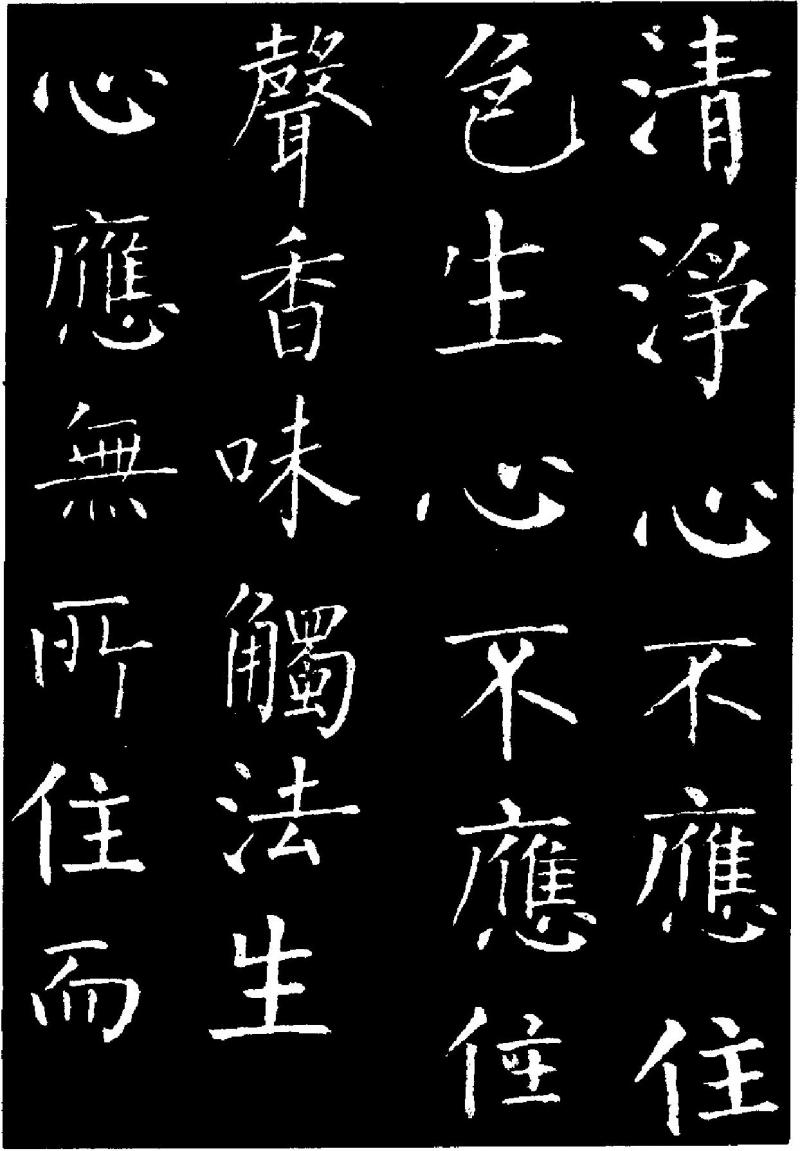 清淨心不應住
色生心不應住
聲香味觸法生
心應無所住而